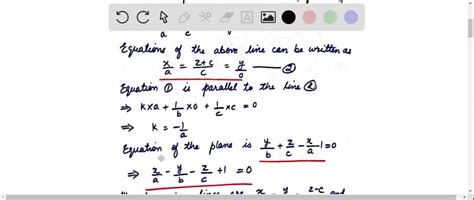 a c
Equations of the above line can be written as
x/a = z+c/c = y/0 — ②
Equation ① is parallel to the line ②
⇒ k×a + 1/b × 0 + 1/c × c = 0
⇒ k = -1/a
Equation of the plane is y/b + z/c - x/a - 1 = 0
⇒ x/a - y/b - z/c + 1 = 0
lines are x y z-c and